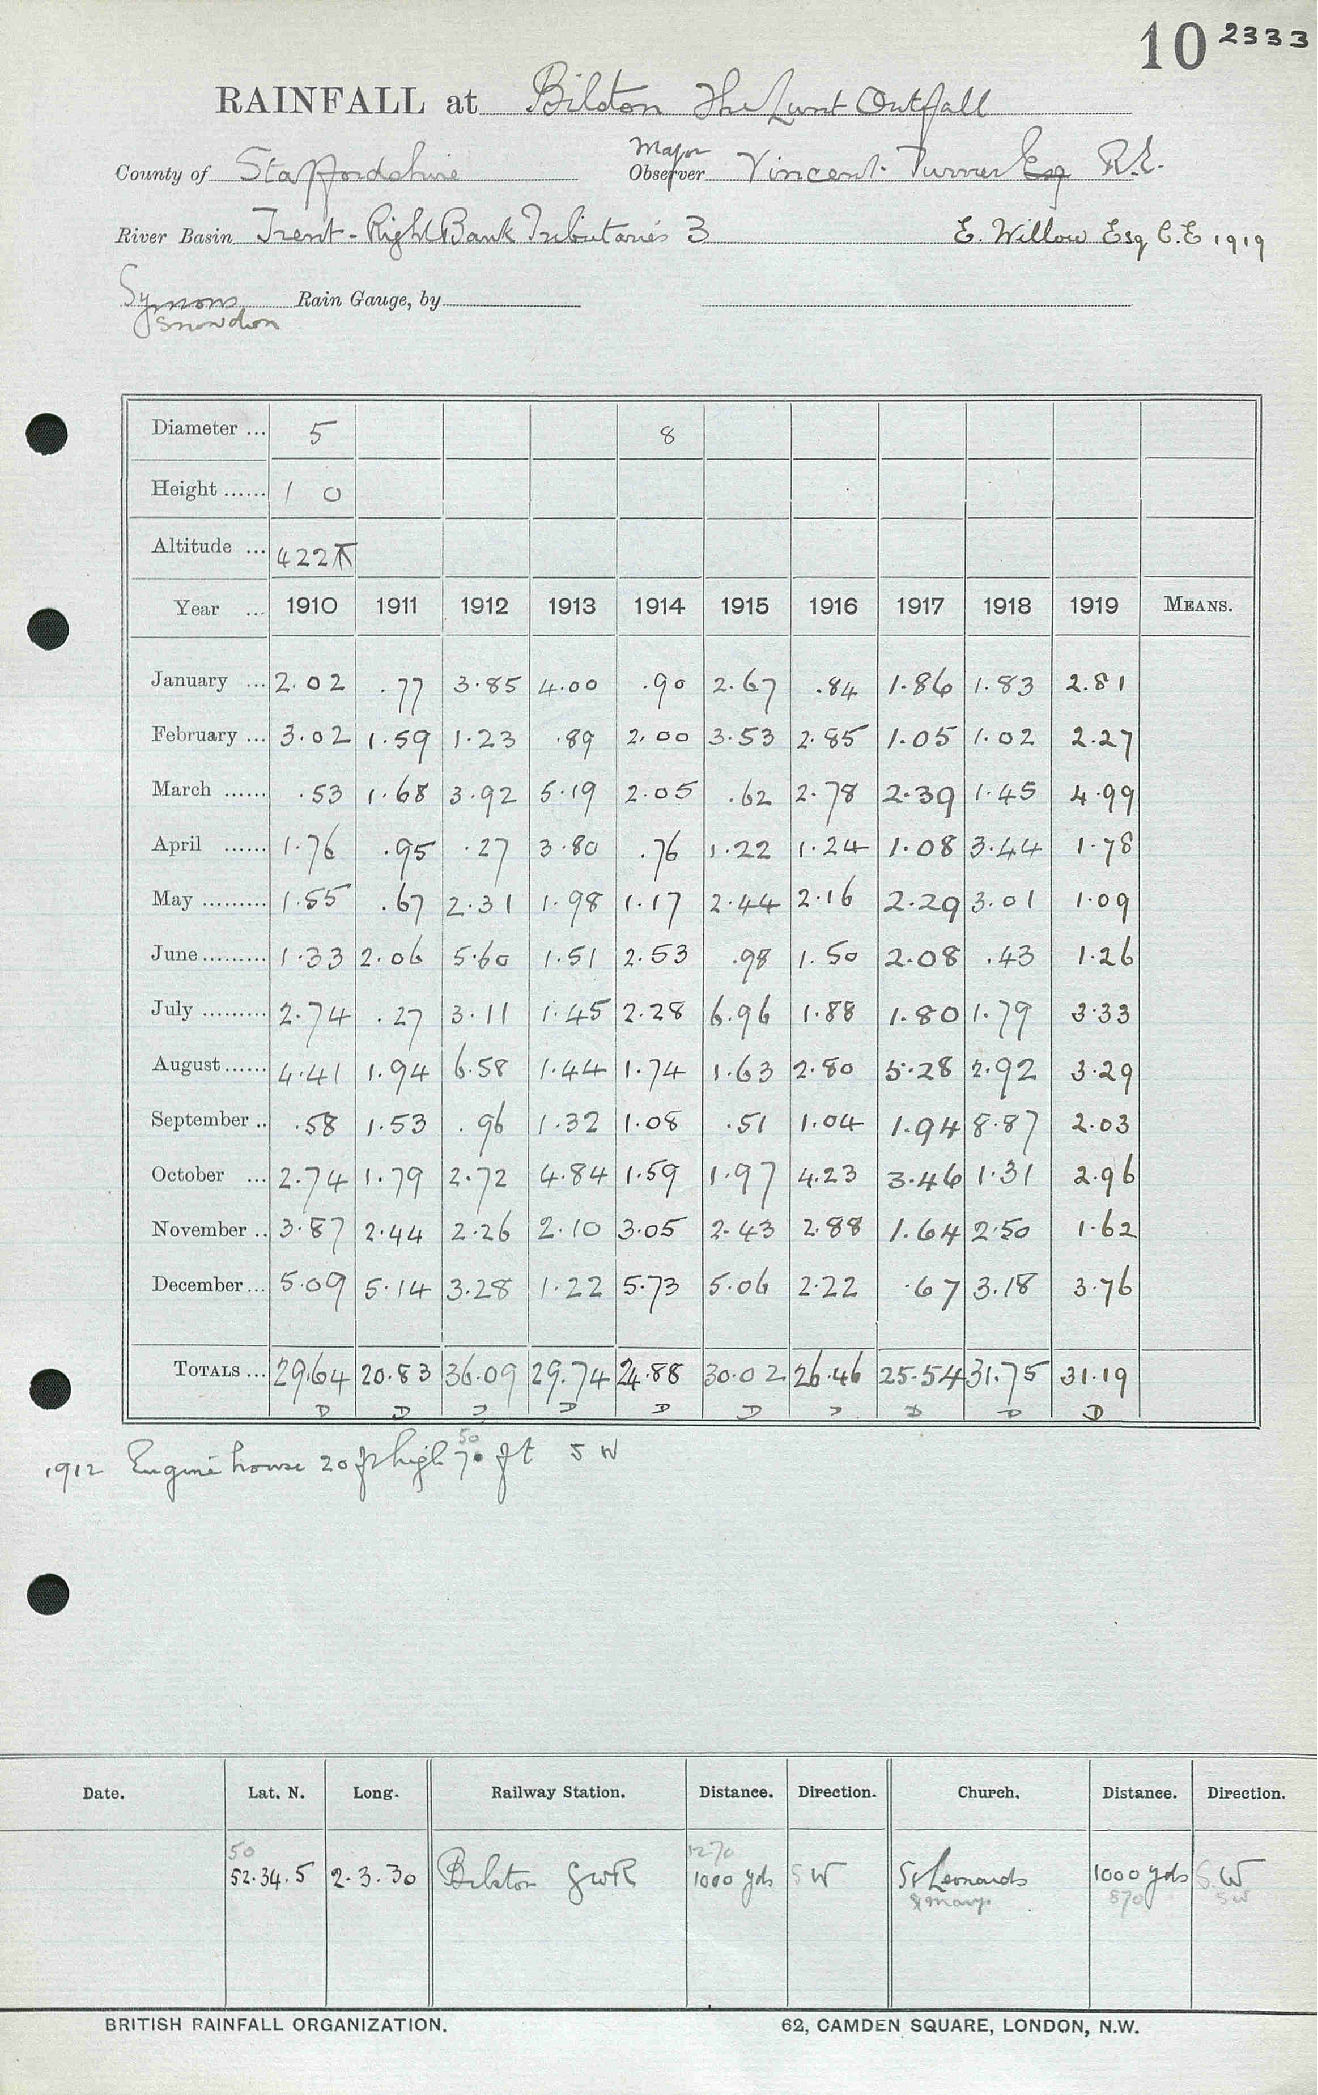 10 2333
RAINFALL at Bilston The Lunt Outfall
County of Staffordshire Major Observer Vincent Turner Esq R.E.
River Basin Trent - Right Bank Tributaries 3 E. Willow Esq C.E 1919
Symons Rain Gauge, by
Snowdon
Diameter ... 5 8
Height ...... 1 0
Altitude ... 422
Year ... 1910 1911 1912 1913 1914 1915 1916 1917 1918 1919 MEANS.
January ... 2.02 .77 3.85 4.00 .90 2.67 .84 1.86 1.83 2.81
February ... 3.02 1.59 1.23 .89 2.00 3.53 2.85 1.05 1.02 2.27
March ...... .53 1.68 3.92 5.19 2.05 .62 2.78 2.39 1.45 4.99
April ...... 1.76 .95 .27 3.80 .76 1.22 1.24 1.08 3.44 1.78
May ......... 1.55 .67 2.31 1.98 1.17 2.44 2.16 2.29 3.01 1.09
June ......... 1.33 2.06 5.60 1.51 2.53 .98 1.50 2.08 .43 1.26
July ......... 2.74 .27 3.11 1.45 2.28 6.96 1.88 1.80 1.79 3.33
August ...... 4.41 1.94 6.58 1.44 1.74 1.63 2.80 5.28 2.92 3.29
September .. .58 1.53 .96 1.32 1.08 .51 1.04 1.94 8.87 2.03
October ... 2.74 1.79 2.72 4.84 1.59 1.97 4.23 3.46 1.31 2.96
November .. 3.87 2.44 2.26 2.10 3.05 2.43 2.88 1.64 2.50 1.62
December ... 5.09 5.14 3.28 1.22 5.73 5.06 2.22 .67 3.18 3.76
TOTALS ... 29.64 20.83 36.09 29.74 24.88 30.02 26.46 25.54 31.75 31.19
D D D D D D D D D D
1912 Engine house 20 ft high 70 ft S W
50
Date. Lat. N. Long. Railway Station. Distance. Direction. Church. Distance. Direction.
50 1270
52.34.5 2.3.30 Bilston GWR 1000 yds SW St Leonards 1000 yds S.W
& Mary 870 SW
BRITISH RAINFALL ORGANIZATION. 62, CAMDEN SQUARE, LONDON, N.W.